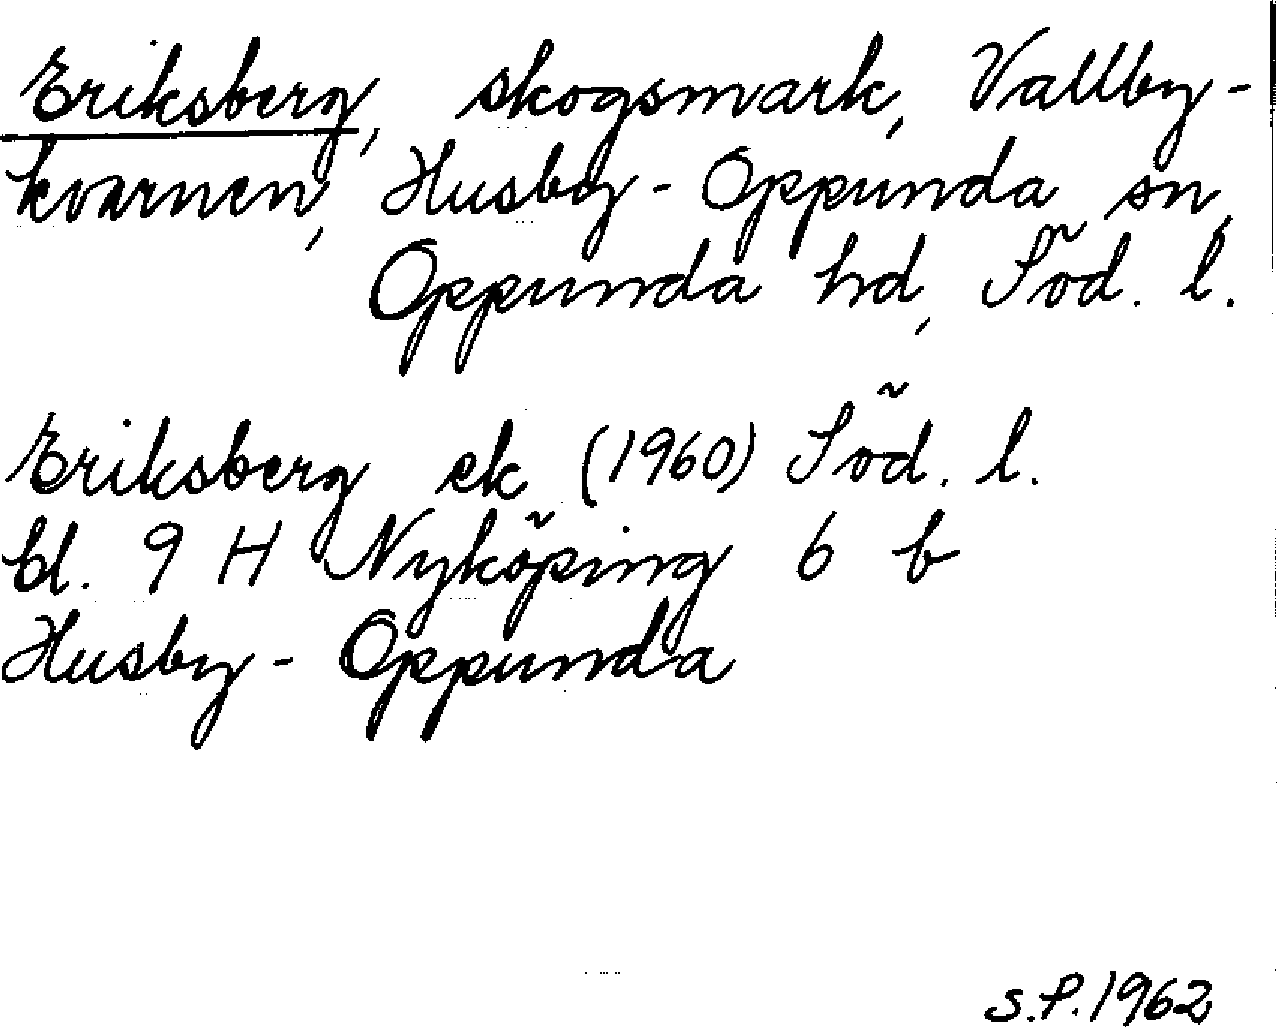 Eriksberg, skogsmark, Vallby-
kvarnen, Husby-Oppunda sn,
Oppunda hd, Söd. l.
Eriksberg ek (1960) Söd. l.
bl. 9 H Nyköping 6 b
Husby-Oppunda
S.P. 1962